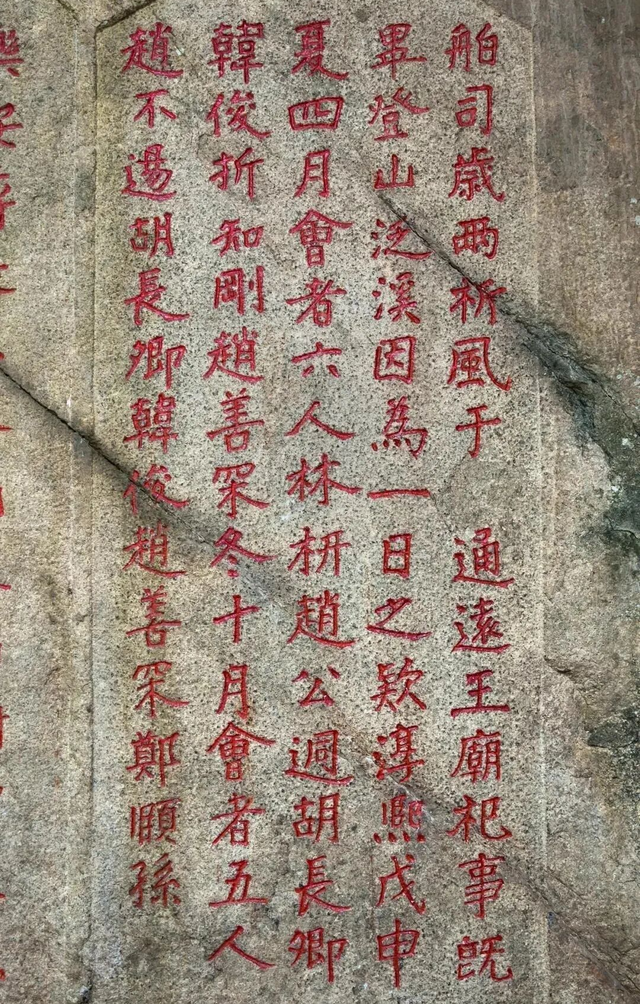 舶司歳兩祈風于　通遠王廟祀事既
畢登山泛溪因爲一日之款淳熙戊申
夏四月會者六人林枅趙公迥胡長卿
韓俊折知剛趙善罙冬十月會者五人
趙不逷胡長卿韓俊趙善罙鄭頤孫